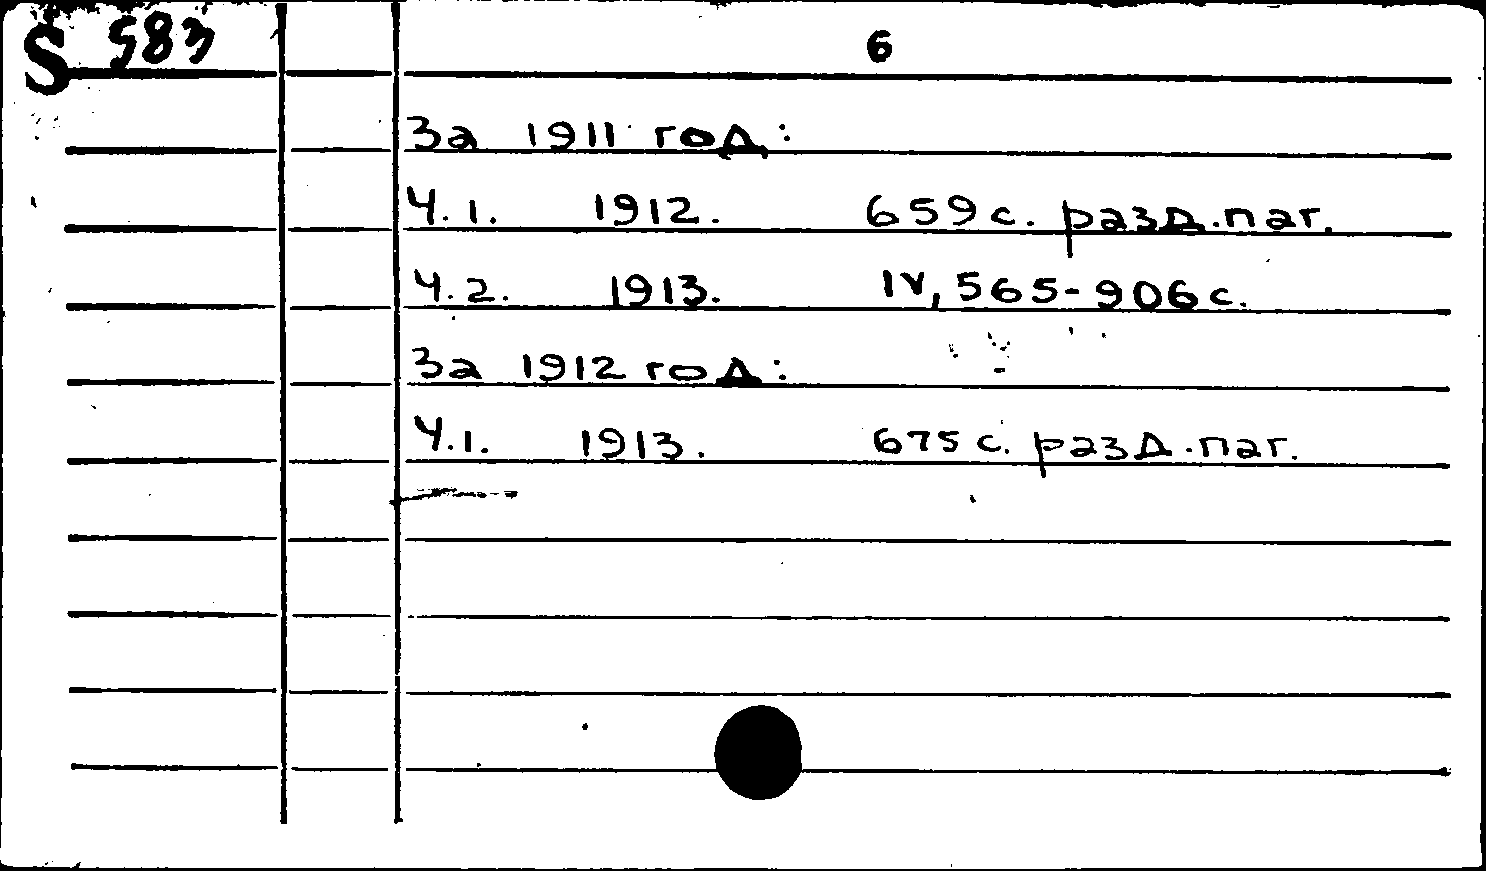 S 583
6
За 1911 год:
Ч.1. 1912. 659 с. разд.паг.
Ч.2. 1913. IV, 565-906 с.
За 1912 год:
Ч.1. 1913. 675 с. разд.паг.